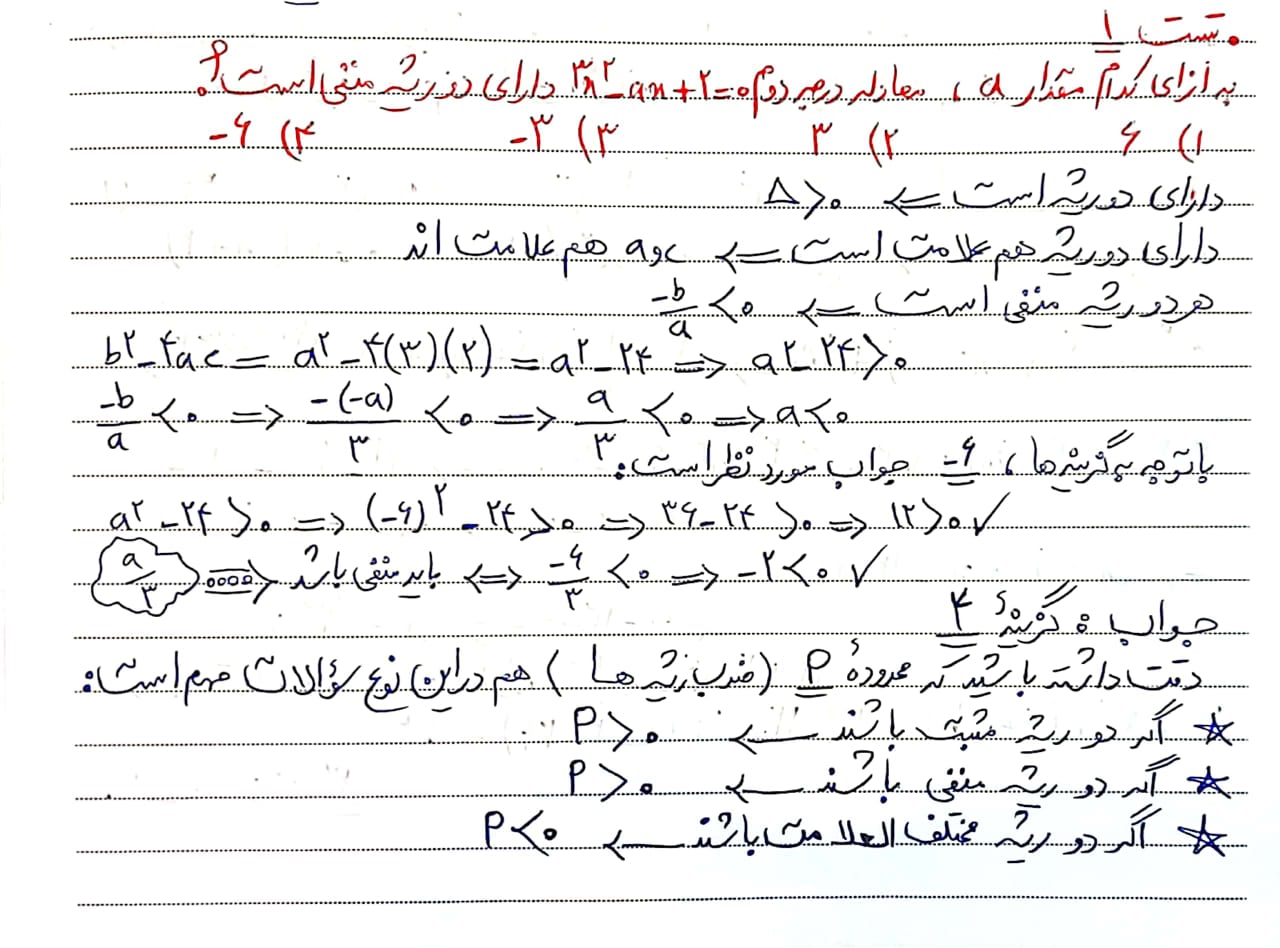 • تست ۱
به ازای کدام مقدار a ، معادله درجه دوم ۳x²-ax+۲=۰ دارای دو ریشه منفی است؟
۱) ۶ ۲) ۳ ۳) -۳ ۴) -۶
دارای دو ریشه است ⇐ Δ>۰
دارای دو ریشه هم علامت است ⇐ a و c هم علامت اند
هر دو ریشه منفی است ⇐ -b/a <۰
b²-۴ac = a²-۴(۳)(۲) = a²-۲۴ ⇒ a²-۲۴>۰
-b/a <۰ ⇒ -(-a)/۳ <۰ ⇒ a/۳ <۰ ⇒ a<۰
با توجه به گزینه‌ها ، -۶ جواب مورد نظر است:
a²-۲۴>۰ ⇒ (-۶)²-۲۴>۰ ⇒ ۳۶-۲۴>۰ ⇒ ۱۲>۰ ✓
a/۳ ⇒ باید منفی باشد ⇔ -۶/۳ <۰ ⇒ -۲<۰ ✓
جواب : گزینهٔ ۴
دقت داشته باشید که محدودهٔ P (ضرب ریشه ها) هم در این نوع سؤالات مهم است:
☆ اگر دو ریشه مثبت باشند ← P>۰
☆ اگر دو ریشه منفی باشند ← P>۰
☆ اگر دو ریشه مختلف العلامت باشند ← P<۰